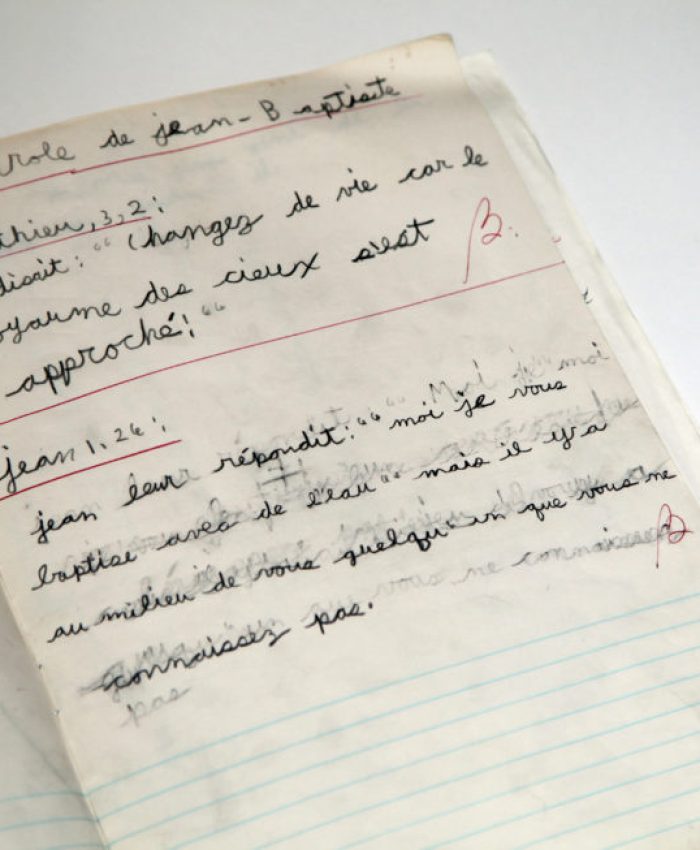 role de jean-Baptiste
thieu, 3, 2:
disait: "Changez de vie car le
oyaume des cieux s'est B.
approché! "
jean 1. 26:
jean leur répondit: "moi je vous
baptise avec de l'eau" mais il y a
au milieu de vous quelqu'un que vous ne B
connaissez pas.
pas